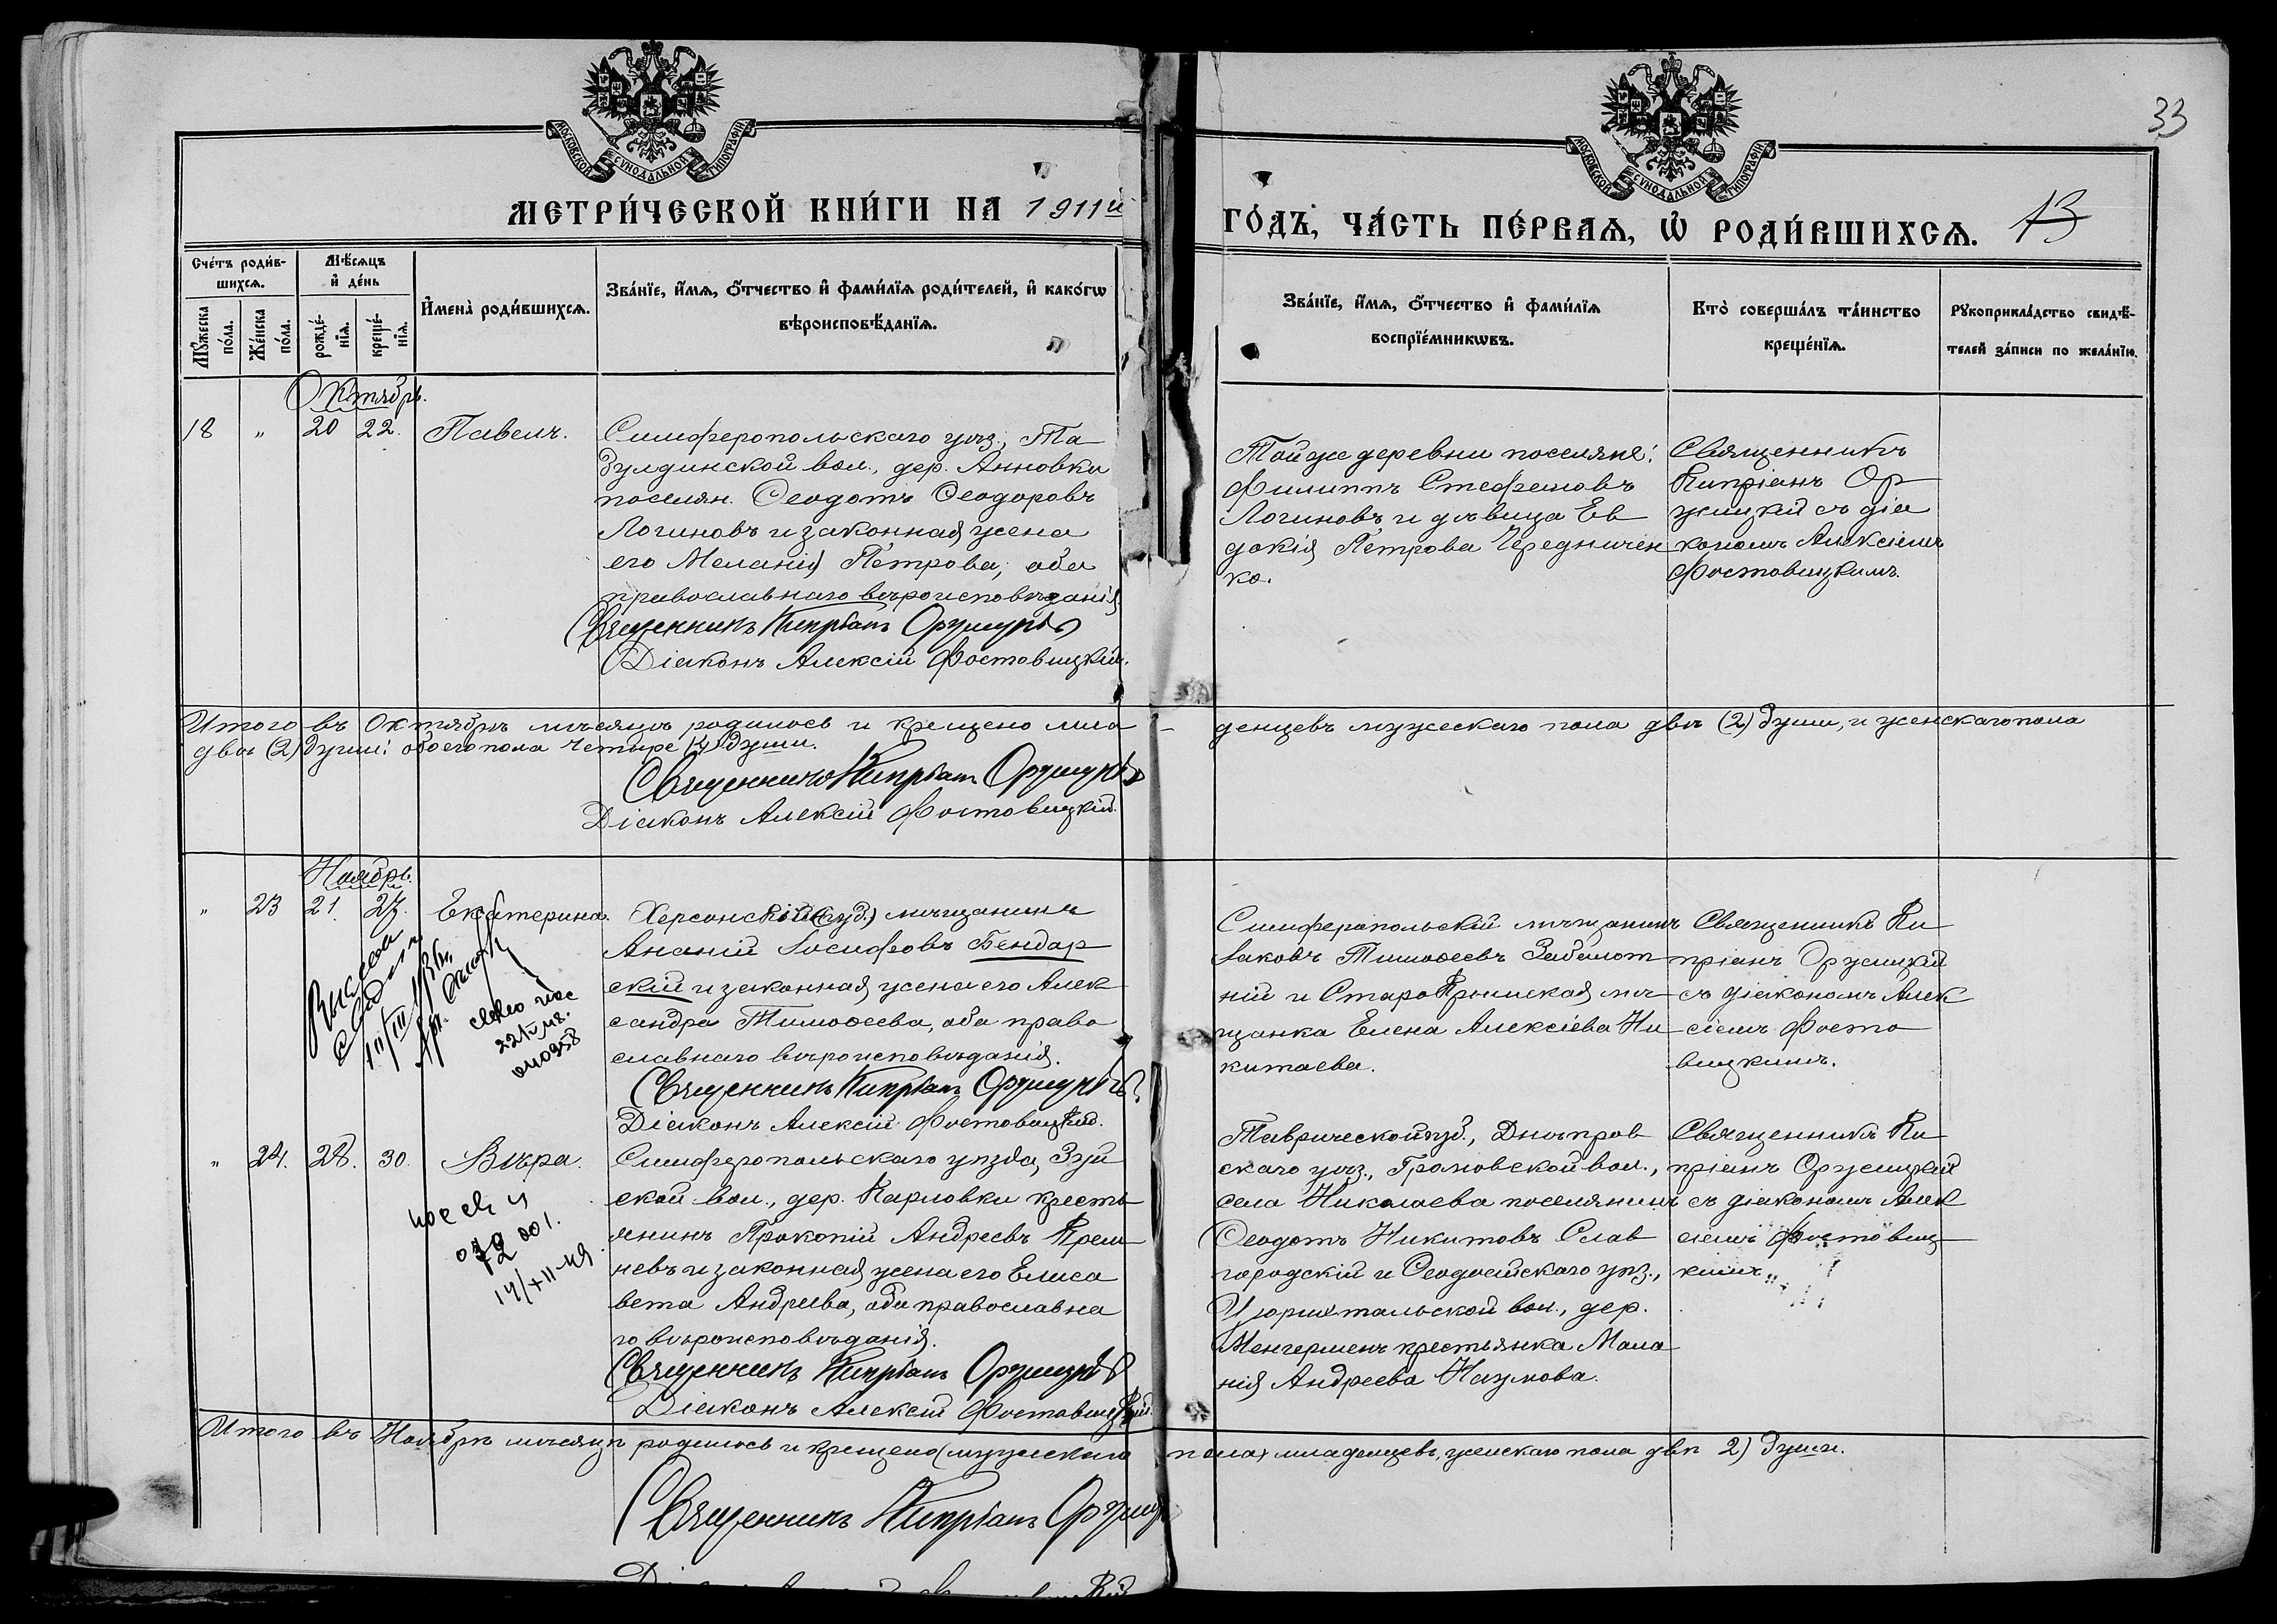 33
МОСКОВСКОЙ СѴНОДАЛЬНОЙ ТИПОГРАФІИ
МОСКОВСКОЙ СѴНОДАЛЬНОЙ ТИПОГРАФІИ
МЕТРИ́ЧЕСКОЙ КНИ́ГИ НА 1911й
ГО́ДЪ, ЧА́СТЬ ПЕ́РВАѦ, Ѡ҆ РОДИ́ВШИХСѦ. 13
Сче́тъ роди́в-
шихсѧ.
Мѣ́сѧцъ
и҆ де́нь
Мꙋ́жеска
по́ла.
Же́нска
по́ла.
рожде́-
нїѧ.
креще́-
нїѧ.
И҆мена̀ роди́вшихсѧ.
Зва́нїе, и҆́мѧ, ѻ҆́тчество и҆ фами́лїѧ роди́телей, и҆ како́гѡ
вѣроисповѣ́данїѧ.
Зва́нїе, и҆́мѧ, ѻ҆́тчество и҆ фами́лїѧ
воспрїе́мникѡвъ.
Кто̀ соверша́лъ та́инство
креще́нїѧ.
Рꙋкоприкла́дство свидѣ́-
телей за́писи по жела́нїю.
Октябрь.
18 " 20 22. Павелъ.
Симферопольскаго уѣз., Та
булдинской вол., дер. Анновки
поселян. Ѳеодотъ Ѳеодоровъ
Логиновъ и законная жена
его Меланія Петрова, оба
православнаго вѣроисповѣданія
Священникъ Кипріанъ Оржицкій
Діаконъ Алексій Фостовицкій.
Тойже деревни поселяне:
Филиппъ Стефановъ
Логиновъ и дѣвица Ев
докія Петрова Чередничен
ко.
Священникъ
Кипріанъ Ор
жицкій съ діа
кономъ Алексіемъ
Фостовицкимъ.
Итого въ Октябрѣ мѣсяцѣ родилось и крещено мла - денцевъ мужескаго пола двѣ (2) души, и женскаго пола
двѣ (2) души: обоего пола четыре (4) души.
Священникъ Кипріанъ Оржицкій
Діаконъ Алексій Фостовицкій.
Ноябрь.
" 23 21. 27. Екатерина.
Херсонскій (губ.) мѣщанинъ
Ананій Іосифовъ Бендар
скій и законная жена его Алек
сандра Тимоѳеева, оба право
славнаго вѣроисповѣданія.
Священникъ Кипріанъ Оржицкій
Діаконъ Алексій Фостовицкій.
Симферопольскій мѣщанинъ
Іаковъ Тимоѳеевъ Заболот
ній и СтароКрымская мѣ
щанка Елена Алексіева Ни
китаева.
Священникъ Ки
пріанъ Оржицкій
съ діакономъ Алек
сіемъ Фосто
вицкимъ.
010958
" 24. 28. 30. Вѣра.
Симферопольскаго уѣзда, Зуй
ской вол., дер. Карловки кресть
янинъ Прокопій Андреевъ Крем
невъ и законная жена его Елиса
вета Андреева, оба православна
го вѣроисповѣданія.
Священникъ Кипріанъ Оржицкій
Діаконъ Алексій Фостовицкій.
14/XII-49
Таврической губ., Днѣпров
скаго уѣз., Громовской вол.,
села Николаева поселянинъ
Ѳеодотъ Никитовъ Слав
городскій и Ѳеодосійскаго уѣз.,
Цюрихтальской вол., дер.
Менгерменъ крестьянка Мала
нія Андреева Наумова.
Священникъ Ки
пріанъ Оржицкій
съ діакономъ Алек
сіемъ Фостовиц
кимъ.
Итого въ Ноябрѣ мѣсяцѣ родилось и крещено (мужескаго пола) младенцевъ, женскаго пола двѣ 2) души.
Священникъ Кипріанъ Оржиц